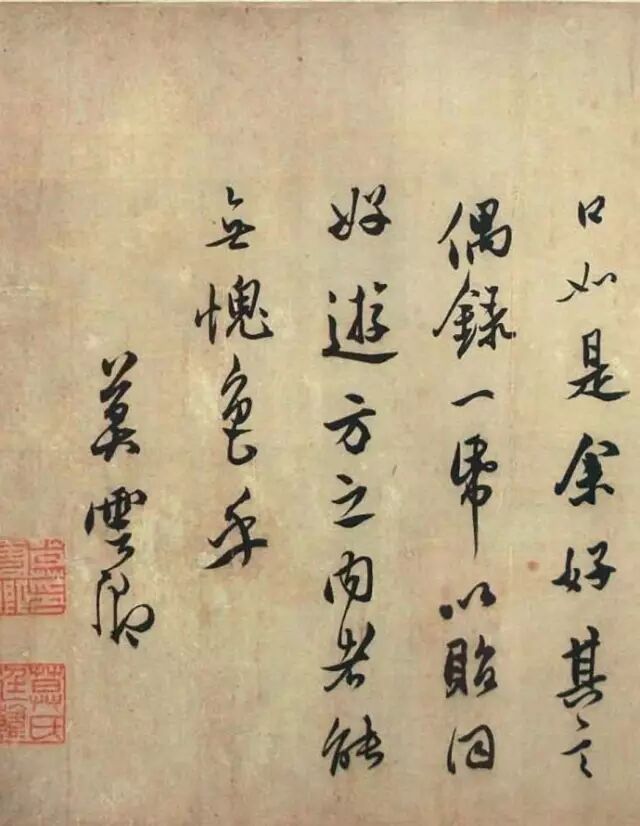 口如是余好其言
偶錄一帋以貽同
好遊方之內者能
無愧色乎
莫雲卿
莫氏